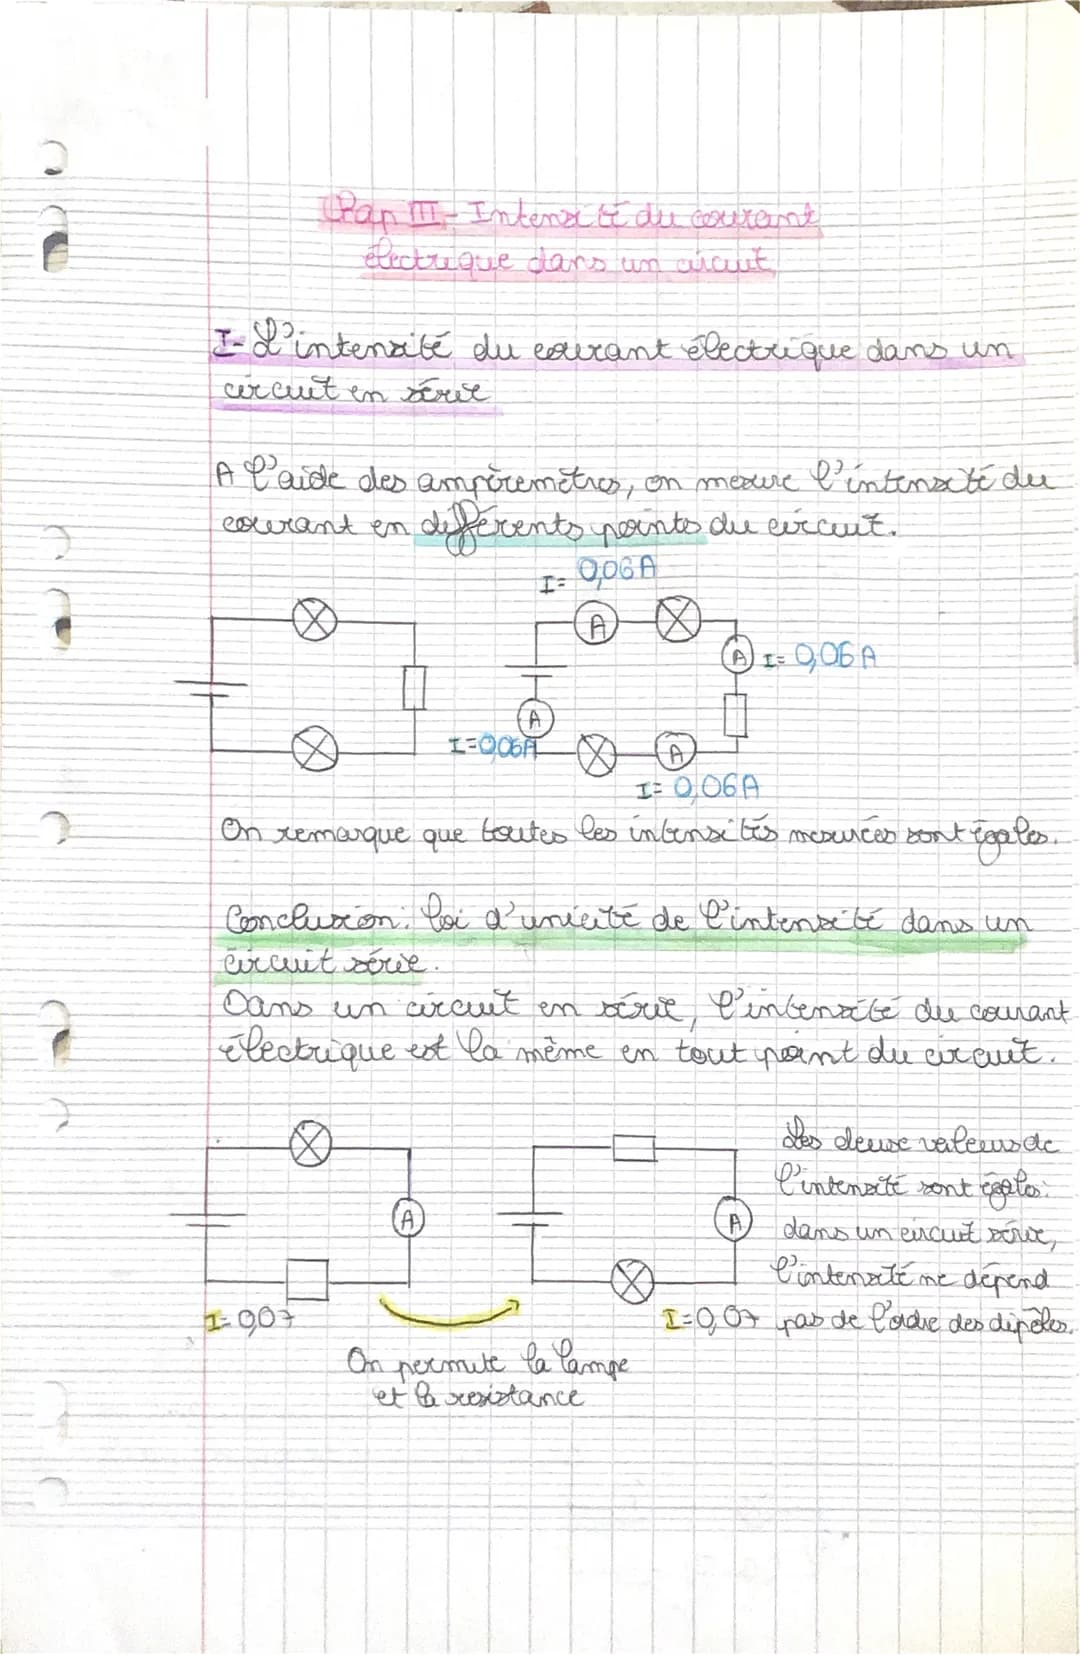 Chap III - Intensité du courant
électrique dans un circuit
I - L'intensité du courant électrique dans un
circuit en série
A l'aide des ampèremètres, on mesure l'intensité du
courant en différents points du circuit.
I= 0,06A
A
A I= 0,06A
A
I=0,06A
A
I= 0,06A
On remarque que toutes les intensités mesurées sont égales.
Conclusion: loi d'unicité de l'intensité dans un
circuit série.
Dans un circuit en série, l'intensité du courant
électrique est la même en tout point du circuit.
A
I=0,07
On permute la lampe
et la resistance
A
I=0,07
Les deux valeurs de
l'intensité sont égales:
dans un circuit série,
l'intensité ne dépend
pas de l'ordre des dipôles.